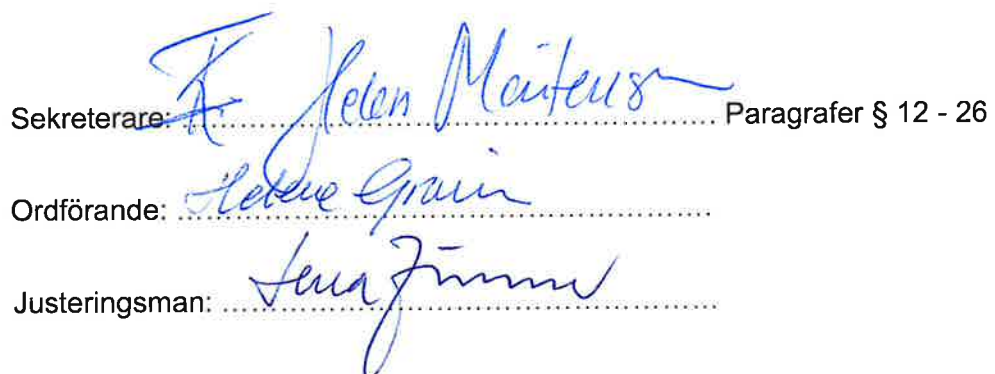 Sekreterare: Helen Mårtensson Paragrafer § 12 - 26
Ordförande: Helene
Justeringsman: Lena